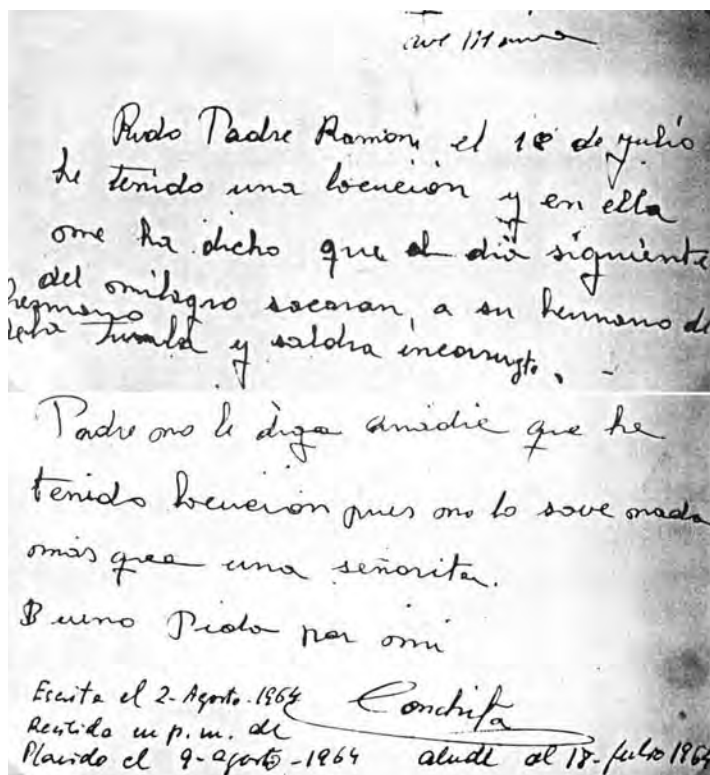 ave Maria
Rvdo Padre Ramon, el 18 de julio
he tenido una locución y en ella
me ha dicho que el dia siguiente
del milagro sacaran, a su hermano de
hermano
la Tumba y saldra incorrupto.
Padre no le diga anadie que he
tenido locución pues no lo save nada
más que a una señorita.
Bueno Pida por mi
Conchita
Escrita el 2-Agosto-1964
Recibida en p.m. de
Placido el 9-agosto-1964 alude al 18-Julio 1964